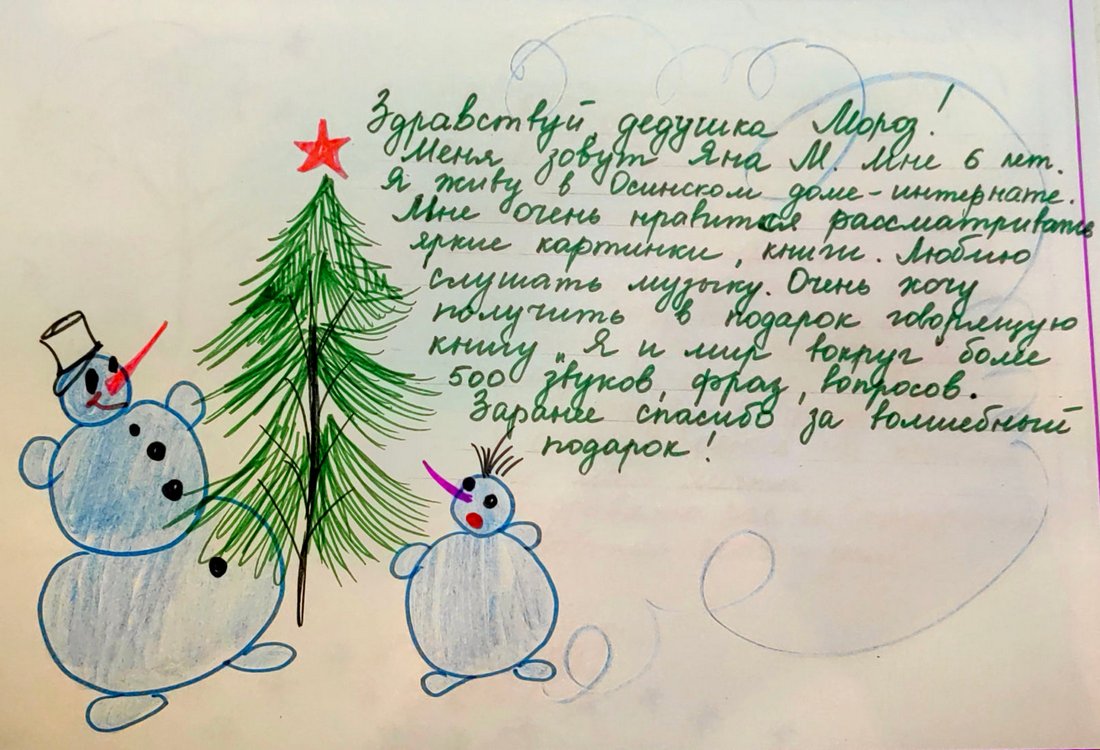 Здравствуй, дедушка Мороз!
Меня зовут Яна М. Мне 6 лет.
Я живу в Осинском доме-интернате.
Мне очень нравится рассматривать
яркие картинки, книги. Люблю
слушать музыку. Очень хочу
получить в подарок говорящую
книгу „Я и мир вокруг более
500 звуков, фраз, вопросов.
Заранее спасибо за волшебный
подарок!